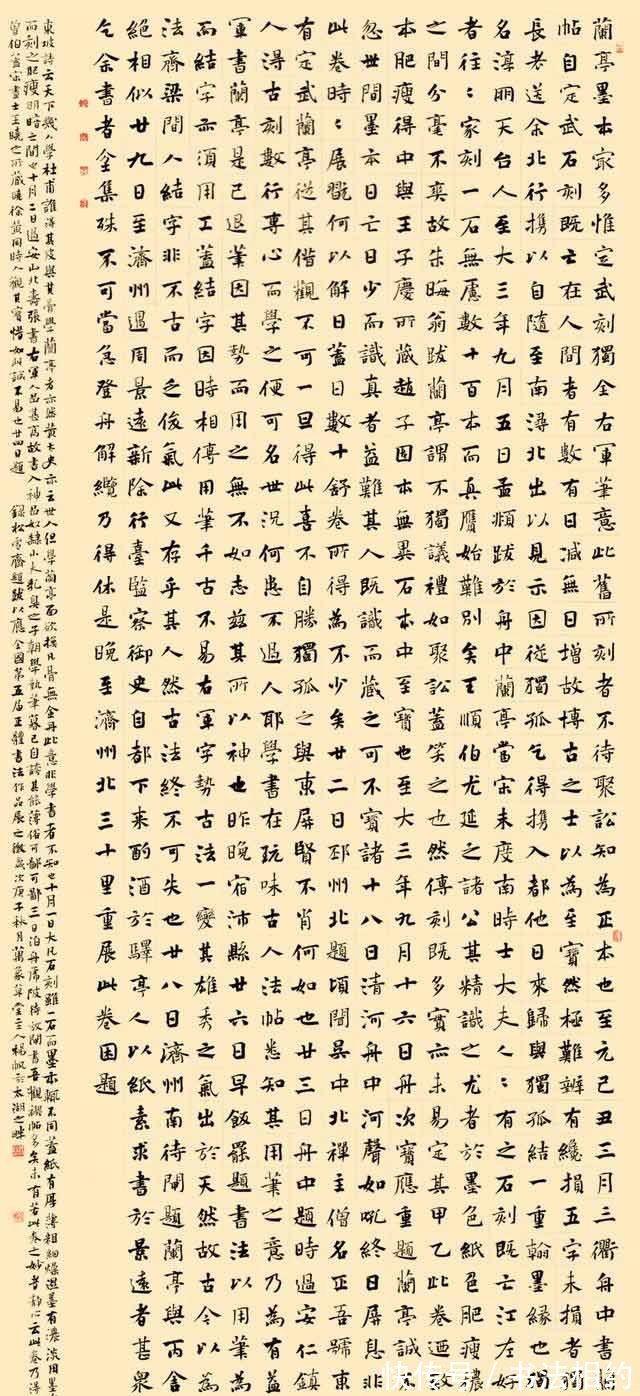 蘭亭墨本最多惟定武刻獨全右軍筆意此舊所刻者不待聚訟知為正本也至元己丑三月三衢舟中書
帖自定武石刻既亡在人間者有數有日減無日增故博古之士以為至寶然極難辨有纔損五字未損者獨
長老送余北行攜以自隨至南潯北出以見示因從獨孤乞得攜入都他日來歸與獨孤結一重翰墨緣也獨
名淳朋天台人至大三年九月五日孟頫跋於舟中蘭亭當宋未度南時士大夫人〻有之石刻既亡江左好
者往〻家刻一石無慮數十百本而真贗始難別矣王順伯尤延之諸公其精識之尤者於墨色紙色肥瘦穠
之間分毫不爽故朱晦翁跋蘭亭謂不獨議禮如聚訟蓋笑之也然傳刻既多實亦未易定其甲乙此卷迺
本肥瘦得中與王子慶所藏趙子固本無異石本中至寶也至大三年九月十六日舟次寶應重題蘭亭誠不
忽世間墨本日亡日少而識真者益難其人既識而藏之可不寶諸十八日清河舟中河聲如吼終日屏息非
此卷時〻展翫何以解日蓋日數十舒卷所得為不少矣廿二日邳州北題頃聞吳中北禪主僧名正吾號東
有定武蘭亭從其借觀不可一旦得此喜不自勝獨孤之與東屏賢不肖何如也廿三日舟中題時過安仁鎮
人得古刻數行專心而學之便可名世況何患不過人耶學書在玩味古人法帖悉知其用筆之意乃為有
軍書蘭亭是已退筆因其勢而用之無不如志茲其所以神也昨晚宿沛縣廿六日早飯罷題書法以用筆為
而結字亦須用工蓋結字因時相傳用筆千古不易右軍字勢古法一變其雄秀之氣出於天然故古今以為
法齊梁間人結字非不古而乏俊氣此又存乎其人然古法終不可失也廿八日濟州南待閘題蘭亭與丙舍
絕相似廿九日至濟州遇周景遠新除行臺監察御史自都下來酌酒於驛亭人以紙素求書於景遠者甚眾
乞余書者坌集殊不可當急登舟解纜乃得休是晚至濟州北三十里重展此卷因題
東坡詩云天下幾人學杜甫誰得其皮與其骨學蘭亭者亦然黃太史亦云世人但學蘭亭面欲換凡骨無金丹此意非學書者不知也十月一日大凡石刻雖一石而墨本輒不同蓋紙有厚薄粗細燥濕墨有濃淡用墨
而刻之肥瘦明暗之間也十月二日過安山北壽張書右軍人品甚高故書入神品奴隸小夫乳臭之子朝學執筆暮已自誇其能薄俗可鄙可鄙三日泊舟虎陂待放閘書吾觀禊帖多矣未有若此卷之妙者靜心云此卷乃得
曾伯蓋宗畫士王曉之所藏曉徐黃同時人觀其寶惜如此誠不易也廿四日題 錄松雪齋題跋以應全國第五屆正體書法作品展之徵歲次庚子秋月萬象草堂主人楊帆於太湖之畔
快传号/书法相约